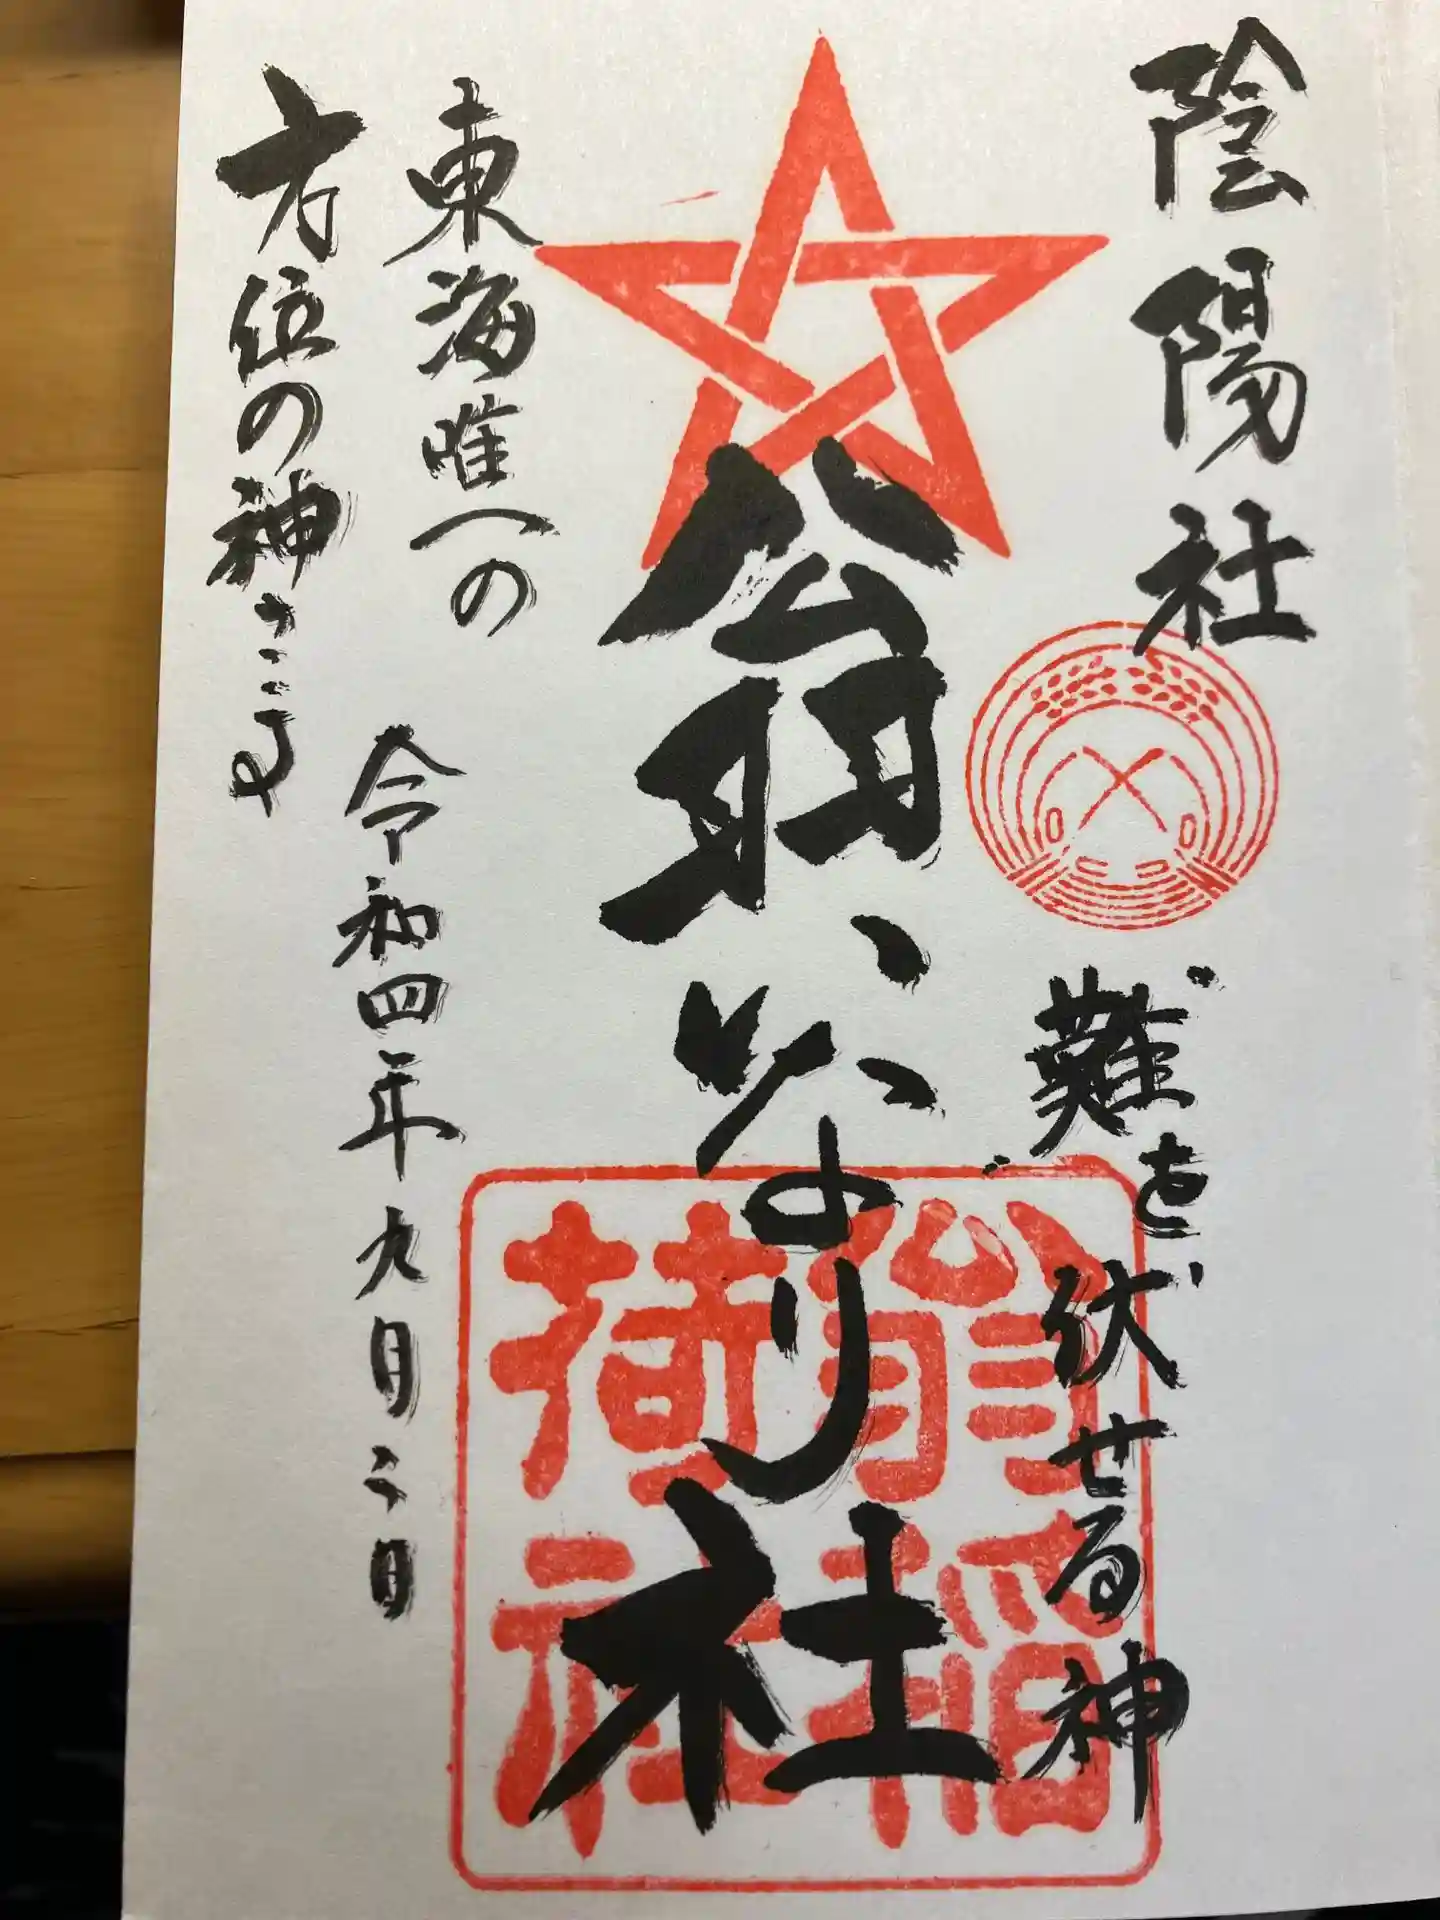 陰陽社
難を伏せる神
翁いなり社
翁稲荷社
東海唯一の
方位の神さま
令和四年九月二日